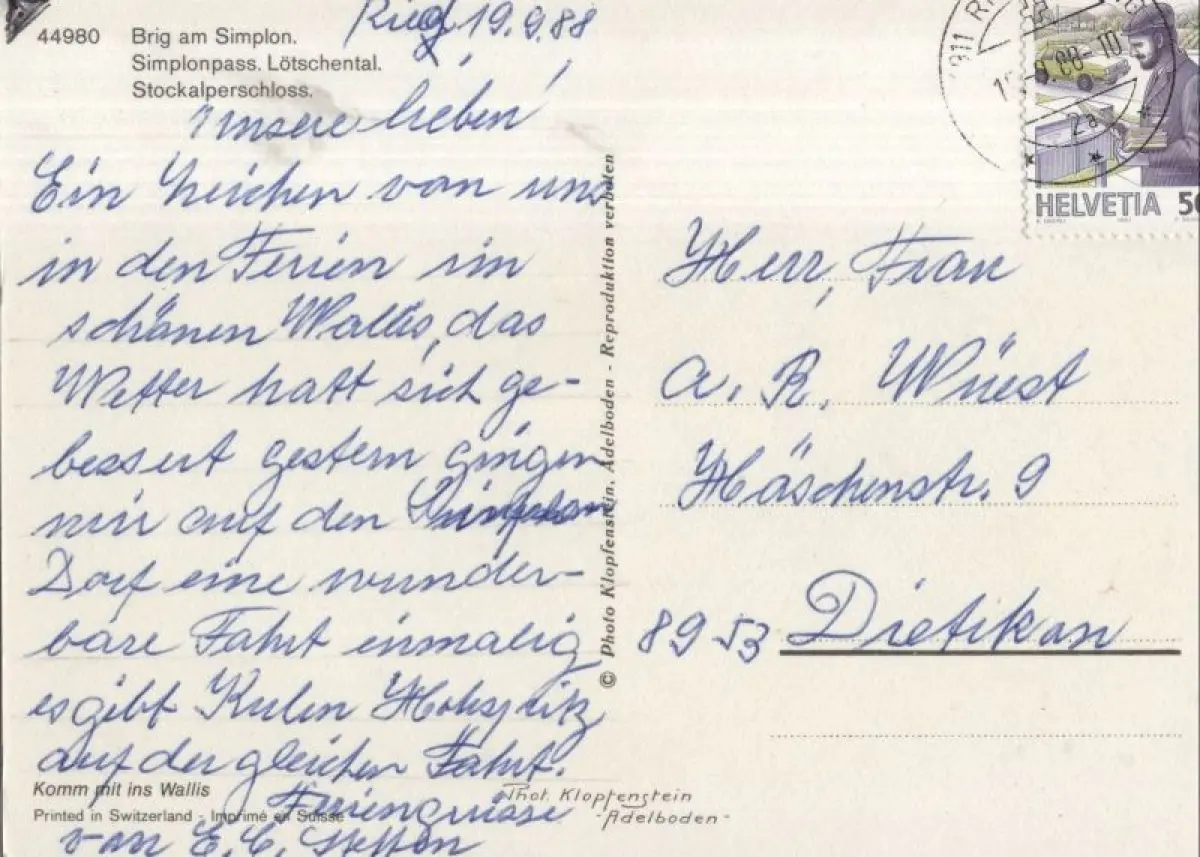 44980 Brig am Simplon.
Simplonpass. Lötschental.
Stockalperschloss.
19.9.88
Unsere lieben!
Ein Zeichen von uns
in den Ferien im
schönen Wallis, das
Wetter hatt sich ge-
bessert gestern gingen
wir auf den Simplon
Dorf eine wunder-
bare Fahrt einmalig
es gibt
auf der gleichen Fahrt.
Feriengrüsse
von E. C. Steffen
Komm mit ins Wallis
Printed in Switzerland - Imprimé en Suisse
Phot. Klopfenstein
-Adelboden-
© Photo Klopfenstein, Adelboden - Reproduktion verboten
HELVETIA 50
Herr, Frau
A. R. Wüest
Häschenstr. 9
8953 Dietikon